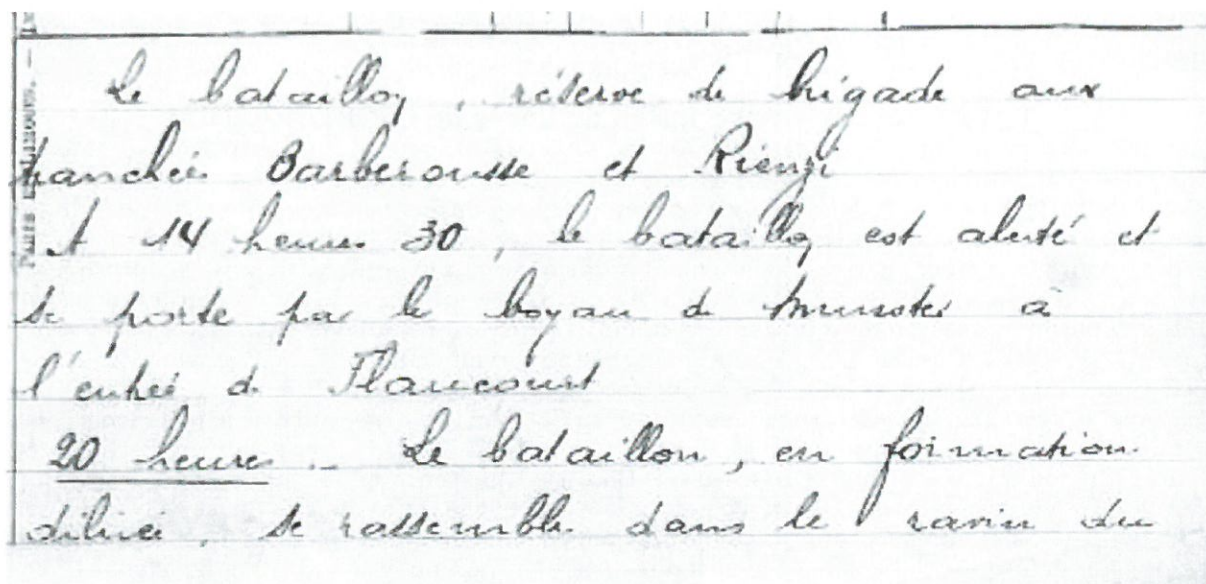 Le bataillon, réserve de brigade aux
tranchées Barberousse et Rienzi
A 14 heures 30, le bataillon est alerté et
se porte par le boyau de Munster à
l'entrée de Flaucourt
20 heures - Le bataillon, en formation
diluée, se rassemble dans le ravin du